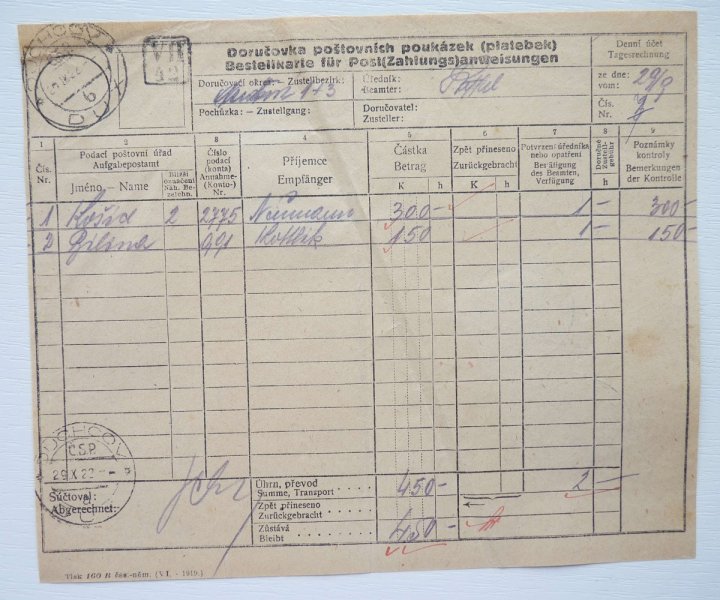 DUCHCOV
ČSP
DUX
b
VII
42
Doručovka poštovních poukázek (platebek)
Bestellkarte für Post(Zahlungs)anweisungen
Denní účet
Tagesrechnung
Doručovací okres: - Zustellbezirk:
1+3
Úředník:
Beamter:
ze dne:
vom:
29/9
Pochůzka: - Zustellgang:
Doručovatel:
Zusteller:
Čís.
Nr.
1 2 3 4 5 6 7 8 9
Čís.
Nr.
Podací poštovní úřad
Aufgabepostamt
Jméno, - Name
Bližší
označení
Näh. Be-
zeichn.
Číslo
podací
(konta)
Annahme-
(Konto-)
Nr.
Příjemce
Empfänger
Částka
Betrag
K h
Zpět přineseno
Zurückgebracht
K h
Potvrzení úředníka
nebo opatření
Bestätigung
des Beamten,
Verfügung
Doručné
Zustell-
gebühr
h
Poznámky
kontroly
Bemerkungen
der Kontrolle
1 Košíd 2 2775 Neumann 300- 1- 300-
2 Bílina 991 Kottlík 150 1- 150-
DUCHCOV
ČSP.
29 X 22
a
Súčtoval:
Abgerechnet:
Úhrn, převod
Summe, Transport
450- 2-
Zpět přineseno
Zurückgebracht
Zůstává
Bleibt
450-
Tisk 160 B čes.-něm. (VI. - 1919.)